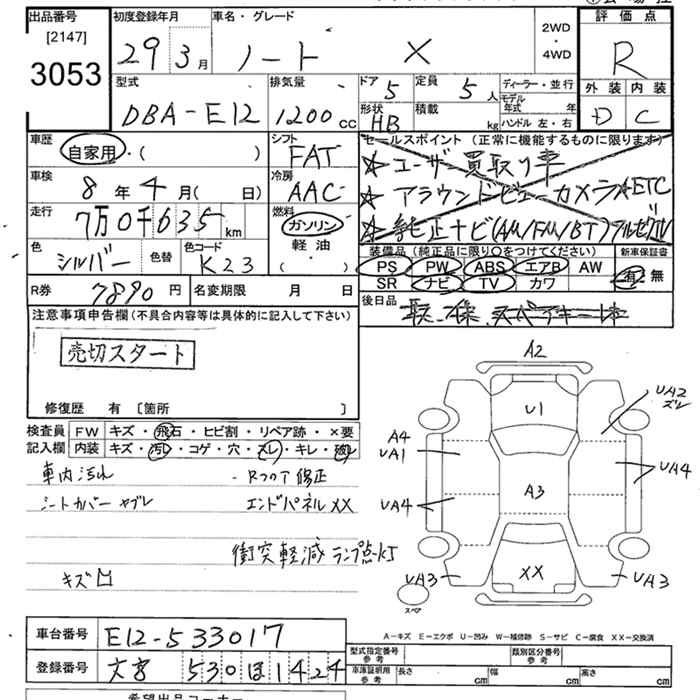 出品番号
[2147]
3053
初度登録年月 29年 3月
車名・グレード ノート X
2WD・4WD
評価点 R
外装 D 内装 C
型式 DBA-E12
排気量 1200cc
ドア 5 形状 HB
定員 5人 積載 kg
ディーラー・並行
モデル年式 年
ハンドル 左・右
車歴 自家用・( )
シフト FAT
車検 8年4月( 日)
冷房 AAC
走行 7万0千635km
燃料 ガソリン・軽油・( )
色 シルバー 色替
色コード K23
R券 7890円
名変期限 月 日
セールスポイント (正常に機能するものに限ります)
☆ユーザー買取り車
☆アラウンドビューカメラ☆ETC
☆純正ナビ(AM/FM/BT)フルセグTV
装備品 (純正品に限り○をつけてください)
新車保証書
PS PW ABS エアB AW 有・無
SR ナビ TV カワ
後日品 取、保、スペアキー1本
注意事項申告欄(不具合内容等は具体的に記入して下さい)
売切スタート
修復歴 有 [箇所 ]
検査員記入欄
FW キズ・飛石・ヒビ割・リペア跡・×要
内装 キズ・汚れ・コゲ・穴・スレ・キレ・破れ
車内汚れ
・Rフロア修正
シートカバーヤブレ
エンドパネルXX
衝突軽減ランプ点灯
キズ凹
A2
U1
UA2
ズレ
A4
UA1
A3
UA4
UA4
UA3
XX
UA3
スペア
A-キズ E-エクボ U-凹み W-補修跡 S-サビ C-腐食 XX-交換済
車台番号 E12-533017
登録番号 大宮 530 ほ 1424
型式指定番号 参考
類別区分番号 参考
車庫証明用 参考 長さ cm 幅 cm 高さ cm
希望出品コーナー